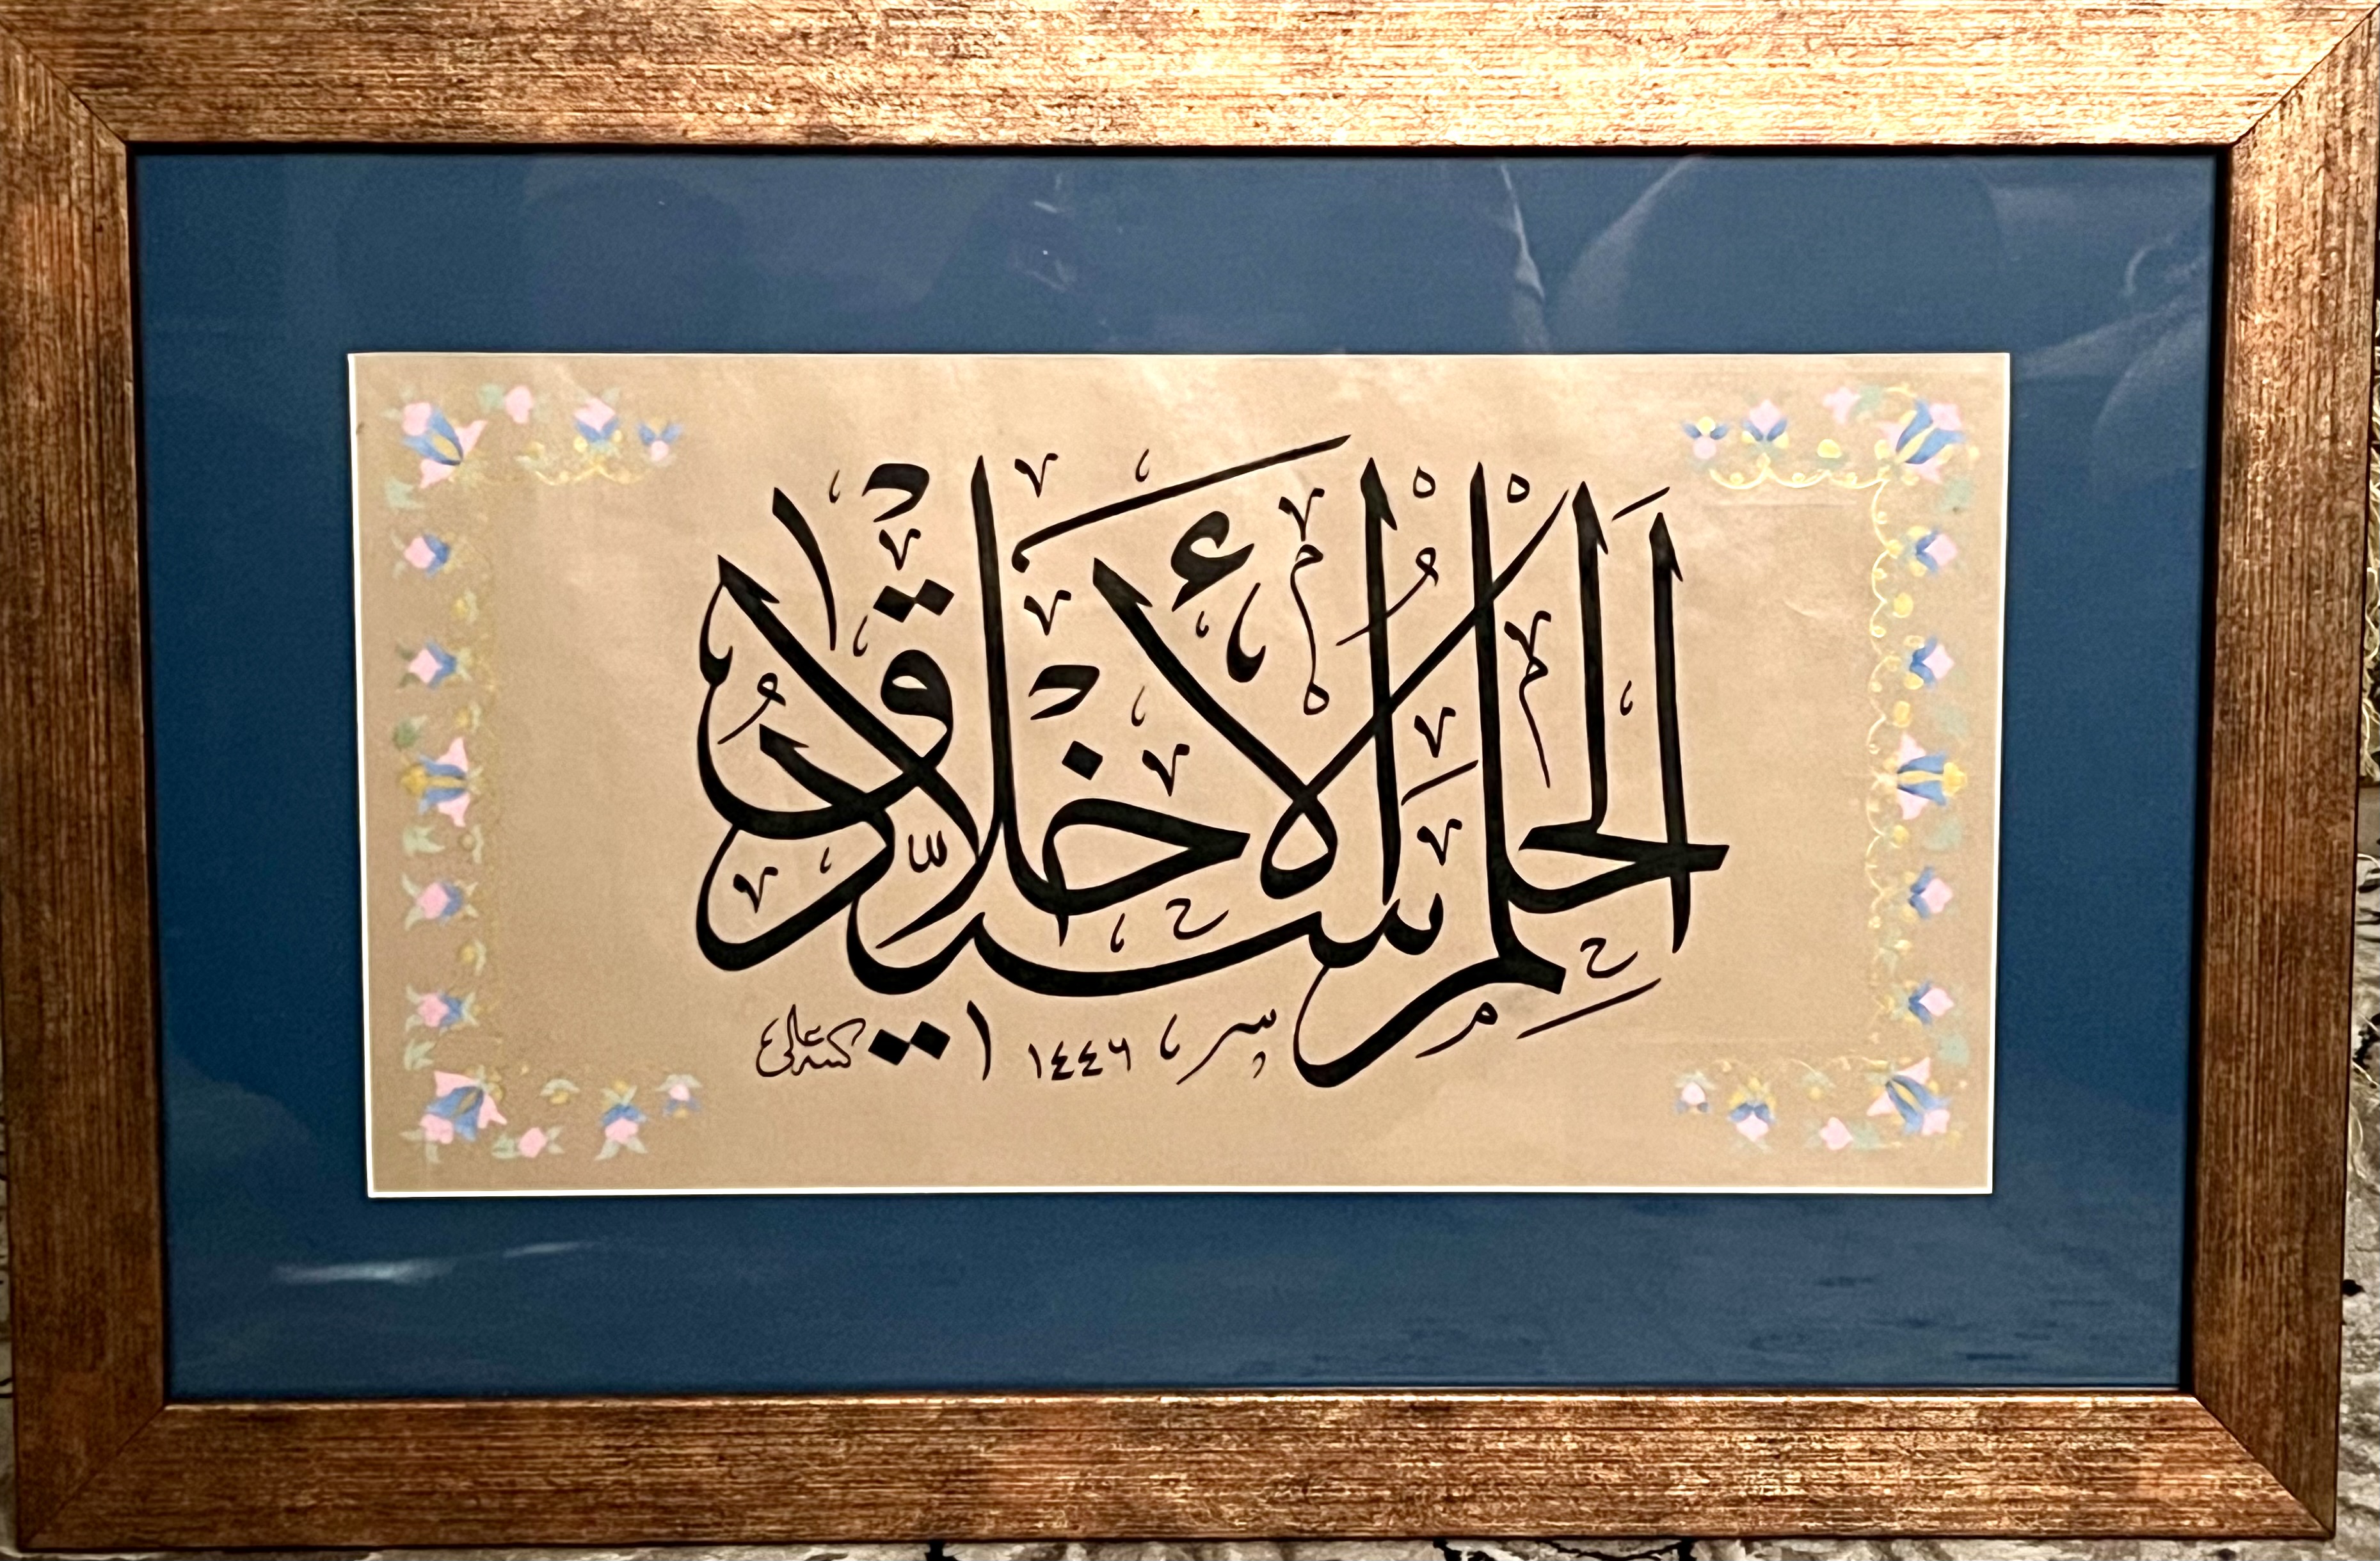 الحلم سيد الأخلاق
كتبه علي ١٤٤٦